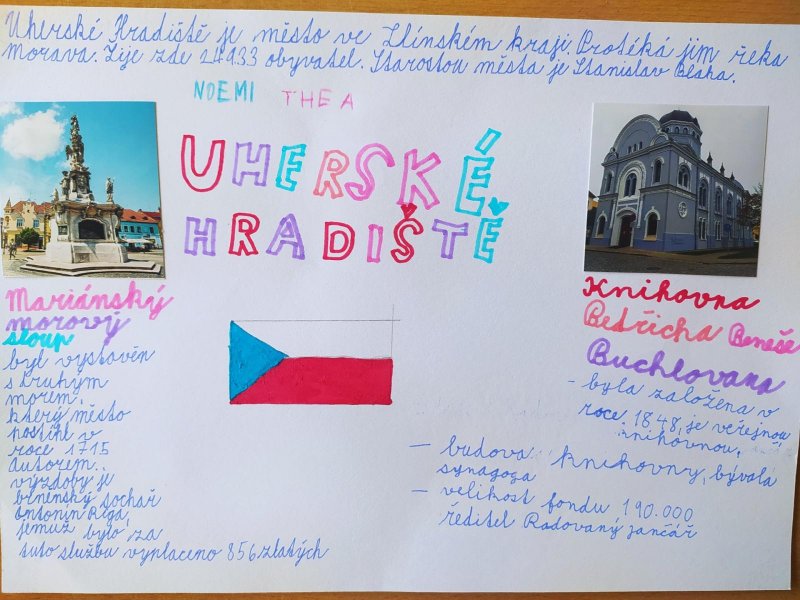 Uherské Hradiště je město ve Zlínském kraji. Protéká jím řeka
Morava. Žije zde 24933 obyvatel. Starostou města je Stanislav Blaha.
NOEMI THEA
UHERSKÉ
HRADIŠTĚ
Mariánský
morový
sloup
byl vystavěn
s druhým
morem,
který město
postihl v
roce 1715
Autorem
výzdoby je
brněnský sochař
Antonín Riga,
jemuž bylo za
tuto službu vyplaceno 856 zlatých
Knihovna
Bedřicha Beneše
Buchlovana
- byla založena v
roce 1848, je veřejnou
knihovnou,
- budova knihovny, bývalá
synagoga
- velikost fondu 190.000
ředitel Radovaný jančář